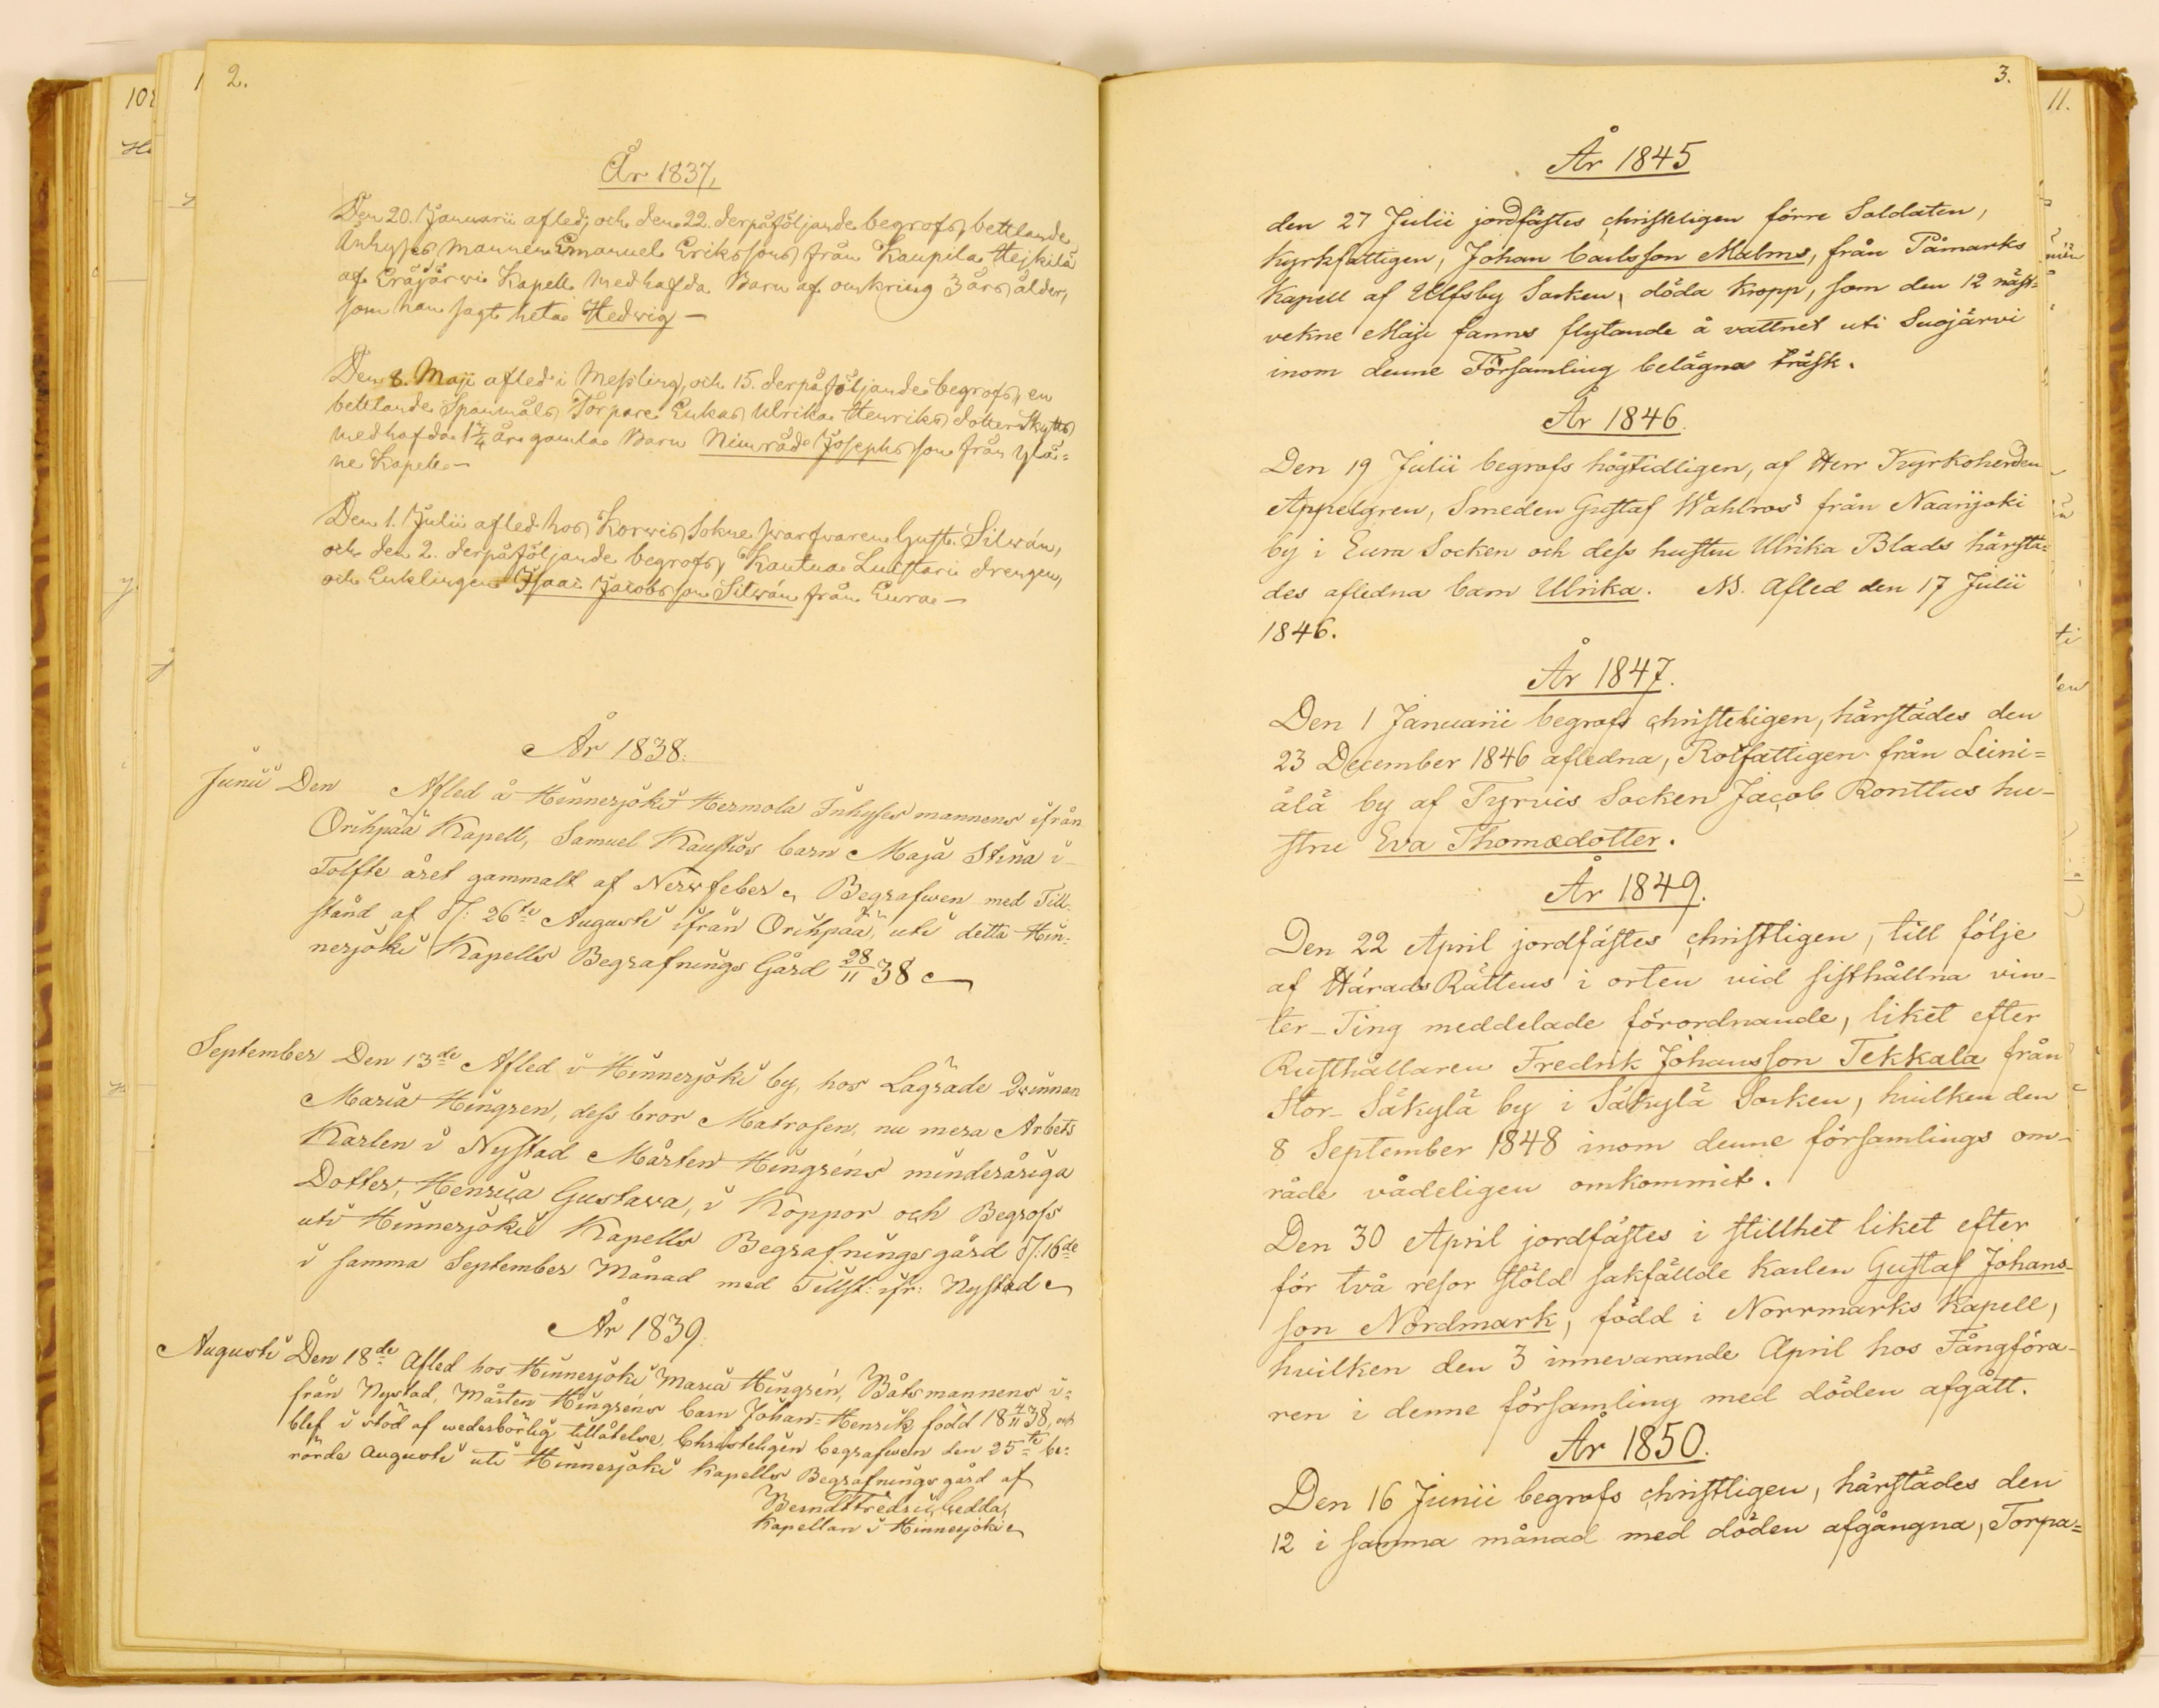 2.
År 1837,
Den 20. Januarii afled, och den 22. derpåföljande begrofs, bettlande
Inhyses Mannen Emanuel Eriksons från Kaupila Hejkilä
af Eräjärwi Kapell medhafda Barn af omkring 3 års ålder,
som han sagt heta Hedwig —
Den 8. Maji afled i Messling, och 15. derpåföljande begrofs, en
bettlande Spanmåls Torpare Enkas Ulrika Henriks dotter Skytts
medhafda 1 3/4 års gamla Barn Nimråd Josephsson från Ylä=
ne Kapell —
Den 1. Julii afled hos Korwis Sokne Swarfvaren Gust. Silwán,
och den 2. derpåföljande begrofs, Kautua Luistari drengen,
och Enklingen Isaac Jacobsson Silwán från Eura —
År 1838.
Junii Den Afled å Hinnerjoki Hermola Inhyses mannens ifrån
Orihpää Kapell, Samuel Kaustios barn Maja Stina i
Tolfte året gammalt af Nervfeber, Begrafwen med Till=
stånd af d: 26te Augusti ifrån Orihpää, uti detta Hin=
nerjoki Kapells Begrafnings Gård 28/11 38
September Den 13de Afled i Hinnerjoki by, hos Lagrade Qvinnan
Maria Hingren, dess bror Matrosen, nu mera Arbets
Karlen i Nystad Mårten Hingréns minderåriga
Dotter, Henrica Gustava, i Koppor och Begrofs
uti Hinnerjoki Kapells Begrafnings gård d. 16de
i samma September Månad med Tillst: ifr: Nystad
År 1839.
Augusti Den 18de Afled hos Hinnerjoki Maria Hingrén, Båtsmannens i=
från Nystad, Mårten Hingréns barn Johan Henrik född 18 4/11 38, och
blef i stöd af wederbörlig tillåtelse, Christeligen begrafwen den 25te be=
rörde Augusti uti Hinnerjoki Kapells Begrafnings gård af
Berndt Fredric Gedda,
Kapellan i Hinnerjoki
3.
År 1845
den 27 Julii jordfästes christeligen förre Soldaten,
Kyrkfattigen, Johan Carlsson Malms, från Påmarks
Kapell af Ulfsby Socken, döda kropp, som den 12 näst=
vekne Maji fanns flytande å vattnet uti Suojärvi
inom denne Församling belägna träsk.
År 1846.
Den 19 Julii begrofs högtidligen, af Herr Kyrkoherden
Appelgren, Smeden Gustaf Wahlros' från Naarijoki
by i Eura Socken och dess hustru Ulrika Blads härstä=
des afledna barn Ulrika. NB. Afled den 17 Julii
1846.
År 1847.
Den 1 Januarii begrofs christeligen, härstädes den
23 December 1846 afledna, Rotfattigen från Leini=
älä by af Tyrvis Socken Jacob Ronttus hu-
stru Eva Thomædotter.
År 1849.
Den 22 April jordfästes christligen, till följe
af Härads Rättens i orten vid sisthållna vin-
ter-Ting meddelade förordnande, liket efter
Rusthållaren Fredrik Johansson Tekkala från
Stor-Säkylä by i Säkylä Socken, hvilken den
8 September 1848 inom denne församlings om-
råde vådeligen omkommit.
Den 30 April jordfästes i stillhet liket efter
för två resor stöld sakfällde karlen Gustaf Johans-
son Nordmark, född i Norrmarks Kapell,
hvilken den 3 innevarande April hos Fångföra-
ren i denne församling med döden afgått.
År 1850.
Den 16 Junii begrofs christligen, härstädes den
12 i samma månad med döden afgångna, Torpa=
11.